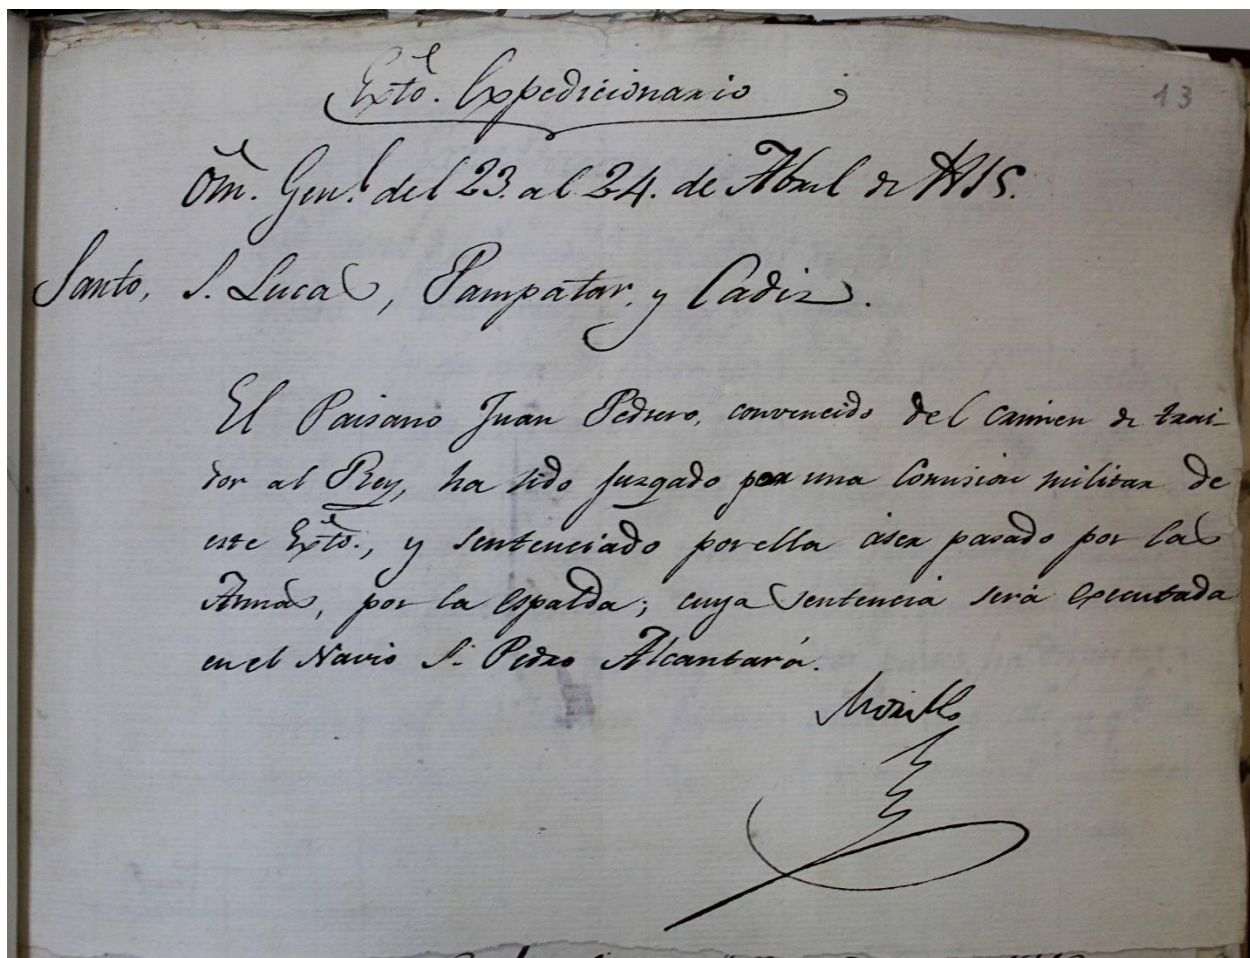 Exto. Expedicionario
13
Orn. Genl. del 23. al 24. de Abril de 1815.
Santo, S. Lucas, Pampatar, y Cadiz.
El Paisano Juan Pedrero, convencido del Crimen de trai-
dor al Rey, ha sido juzgado por una Comision militar de
este Exto., y sentenciado por ella áser pasado por las
Armas, por la espalda; cuya sentencia será executada
en el Navio Sn. Pedro Alcantará.
Morillo